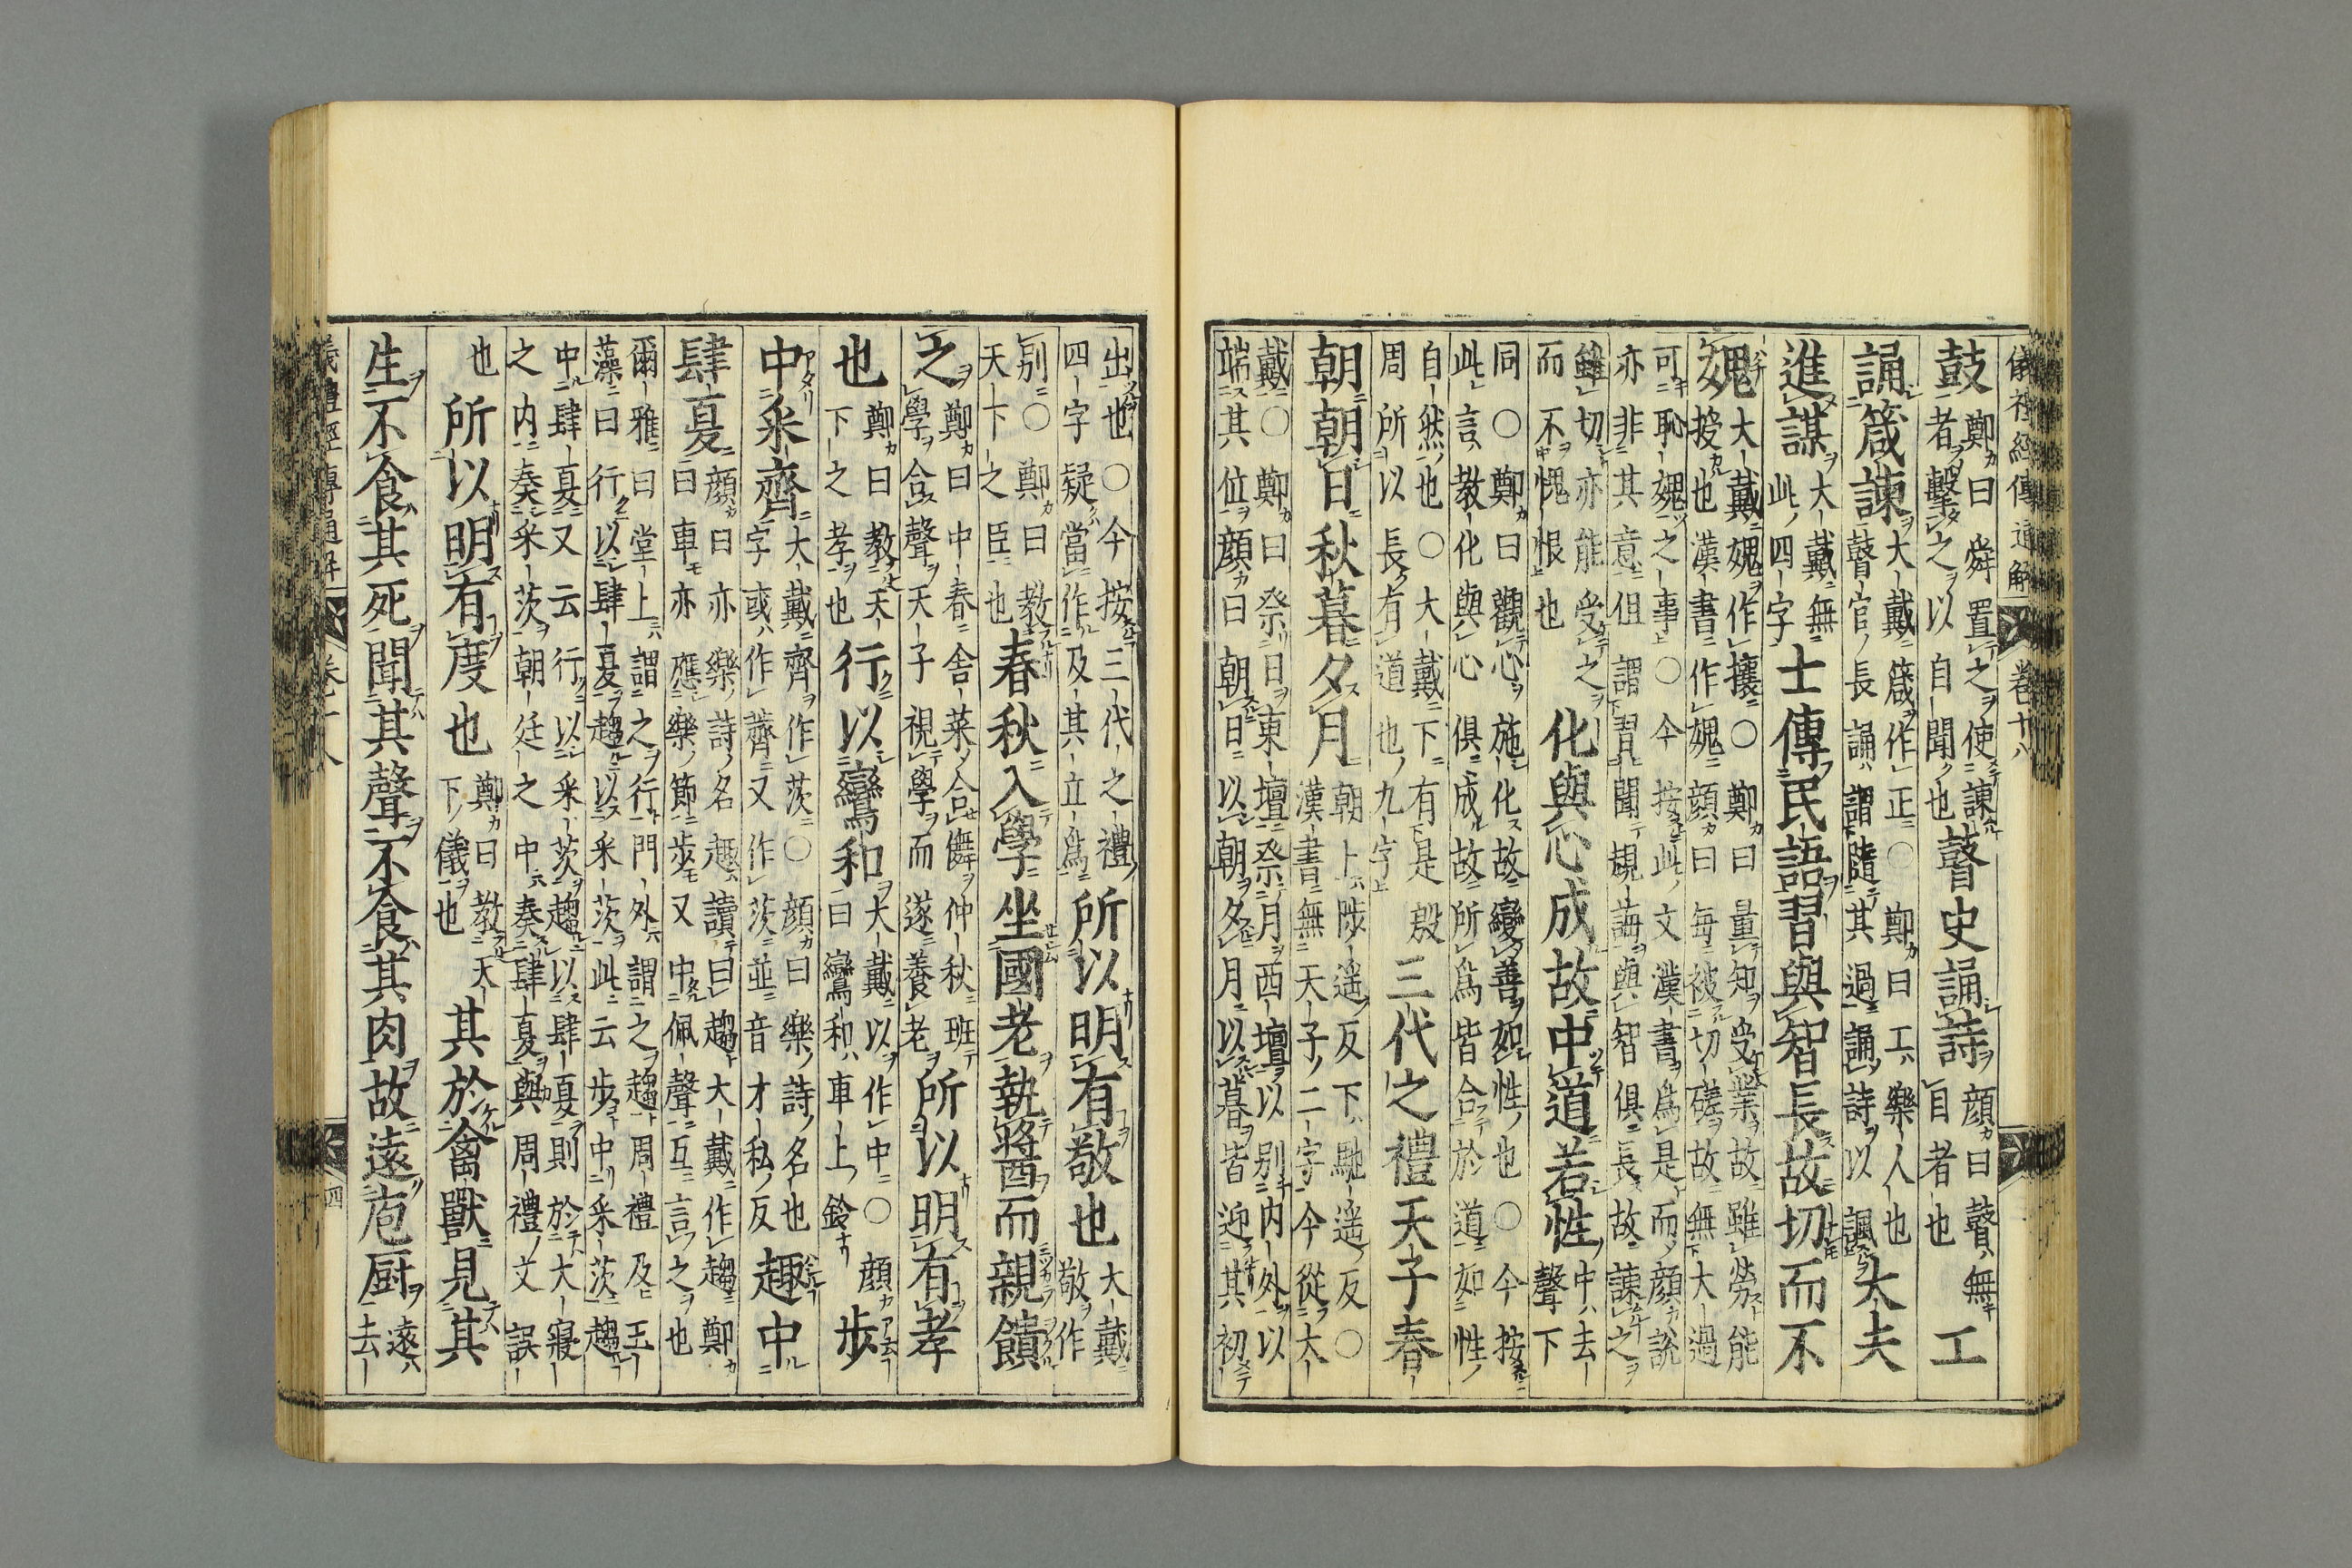 儀禮經傳通解 卷十八
鼓鄭曰舜置之使諫者擊之以自聞也瞽史誦詩顏曰瞽無目者也工
誦箴諫大戴箴作正○鄭曰工樂人也瞽官長誦謂隨其過誦詩以諷大夫
進謀大戴無此四字士傳民語習與智長故切而不
媿大戴媿作攘○鄭曰量知受業故雖勞能授也漢書作媿顏曰每被切磋故無大過
可恥媿之事○今按此文漢書爲是而顏說亦非其意但謂習聞規誨與智俱長故諫之
雖切亦能受之而不愧恨也化與心成故中道若性中去聲下
同○鄭曰觀心施化故變善如性也○今按此言教化與心俱成故所爲皆合於道如性
自然也○大戴下有是殷周所以長有道也九字三代之禮天子春
朝朝日秋暮夕月朝上陟遥反下馳遥反○漢書無天子二字今從大
戴○鄭曰祭日東壇祭月西壇以別内外以端其位顏曰朝日以朝夕月以暮皆迎其初
出也○今按三代之禮四字疑當作及其立爲所以明有敬也大戴敬作
別○鄭曰教天下之臣也春秋入學坐國老執醬而親饋
之鄭曰中春舍菜合舞仲秋班學合聲天子視學而遂養老所以明有孝
也鄭曰教天下之孝也行以鸞和大戴以作中○顏曰鸞和車上鈴步
中采齊大戴齊作茨○顏曰樂詩名也字或作薺又作茨並音才私反趣中
肆夏顏曰亦樂詩名趣讀曰趨大戴作趨鄭曰車亦應樂節步又中佩聲互言之也
爾雅曰堂上謂之行門外謂之趨周禮及玉藻曰行以肆夏趨以采茨此云步中采茨趨
中肆夏又云行以采茨趨以肆夏則於大寢之内奏采茨朝廷之中奏肆夏與周禮文誤
也所以明有度也鄭曰教天下儀也其於禽獸見其
生不食其死聞其聲不食其肉故遠庖厨遠去
儀禮經傳通解 卷十八 四